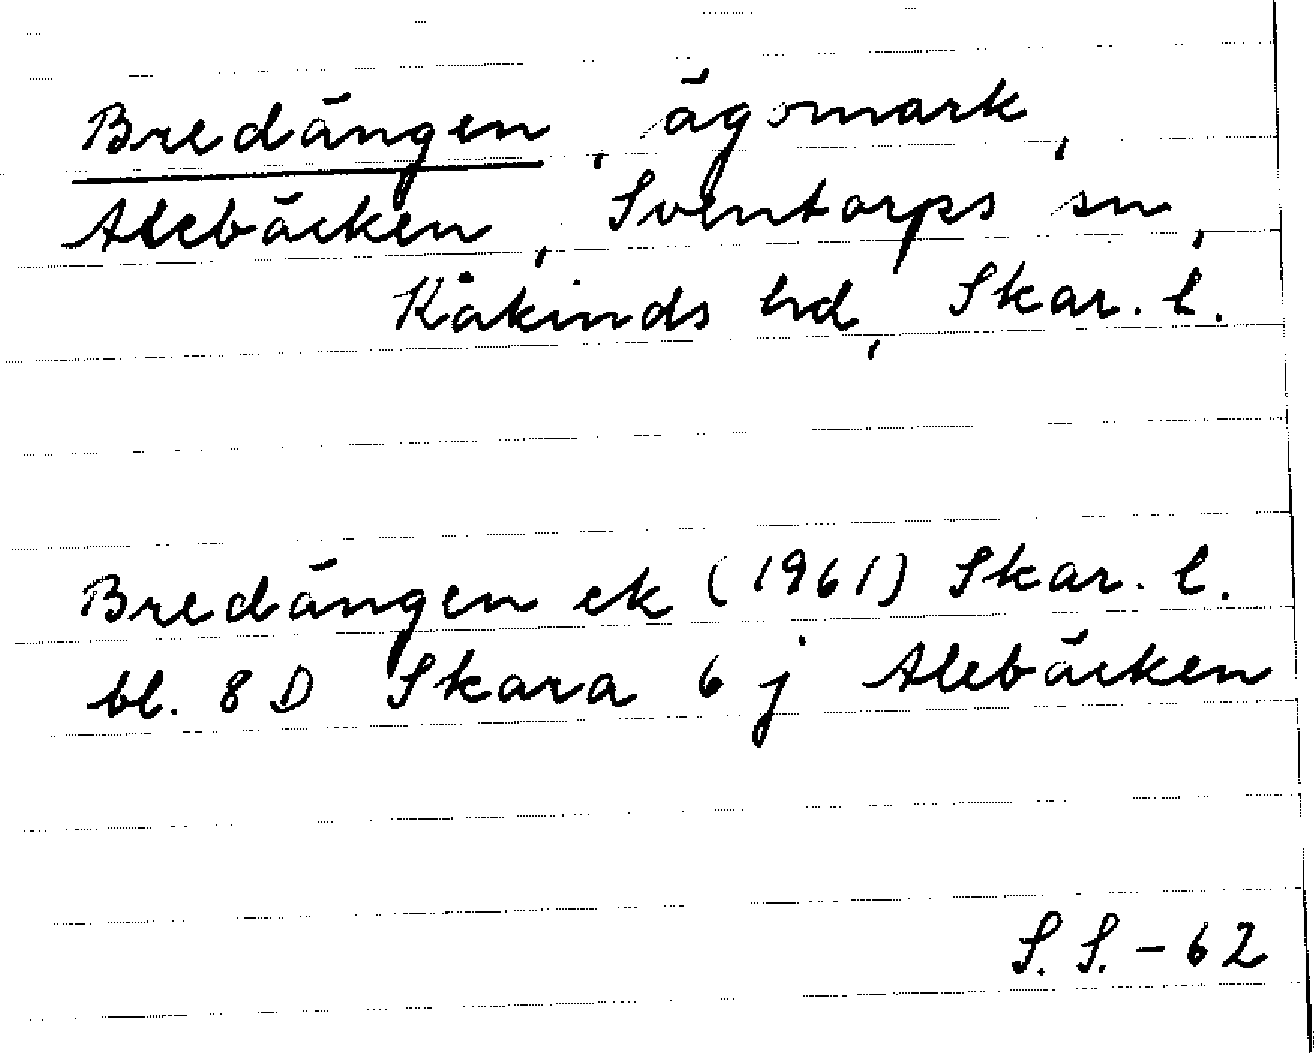 Bredängen, ägomark,
Alebäcken, Sventorps sn,
Kåkinds hd, Skar. l.
Bredängen ek (1961) Skar. l.
bl. 8 D Skara 6 j Alebäcken
S. S. - 62